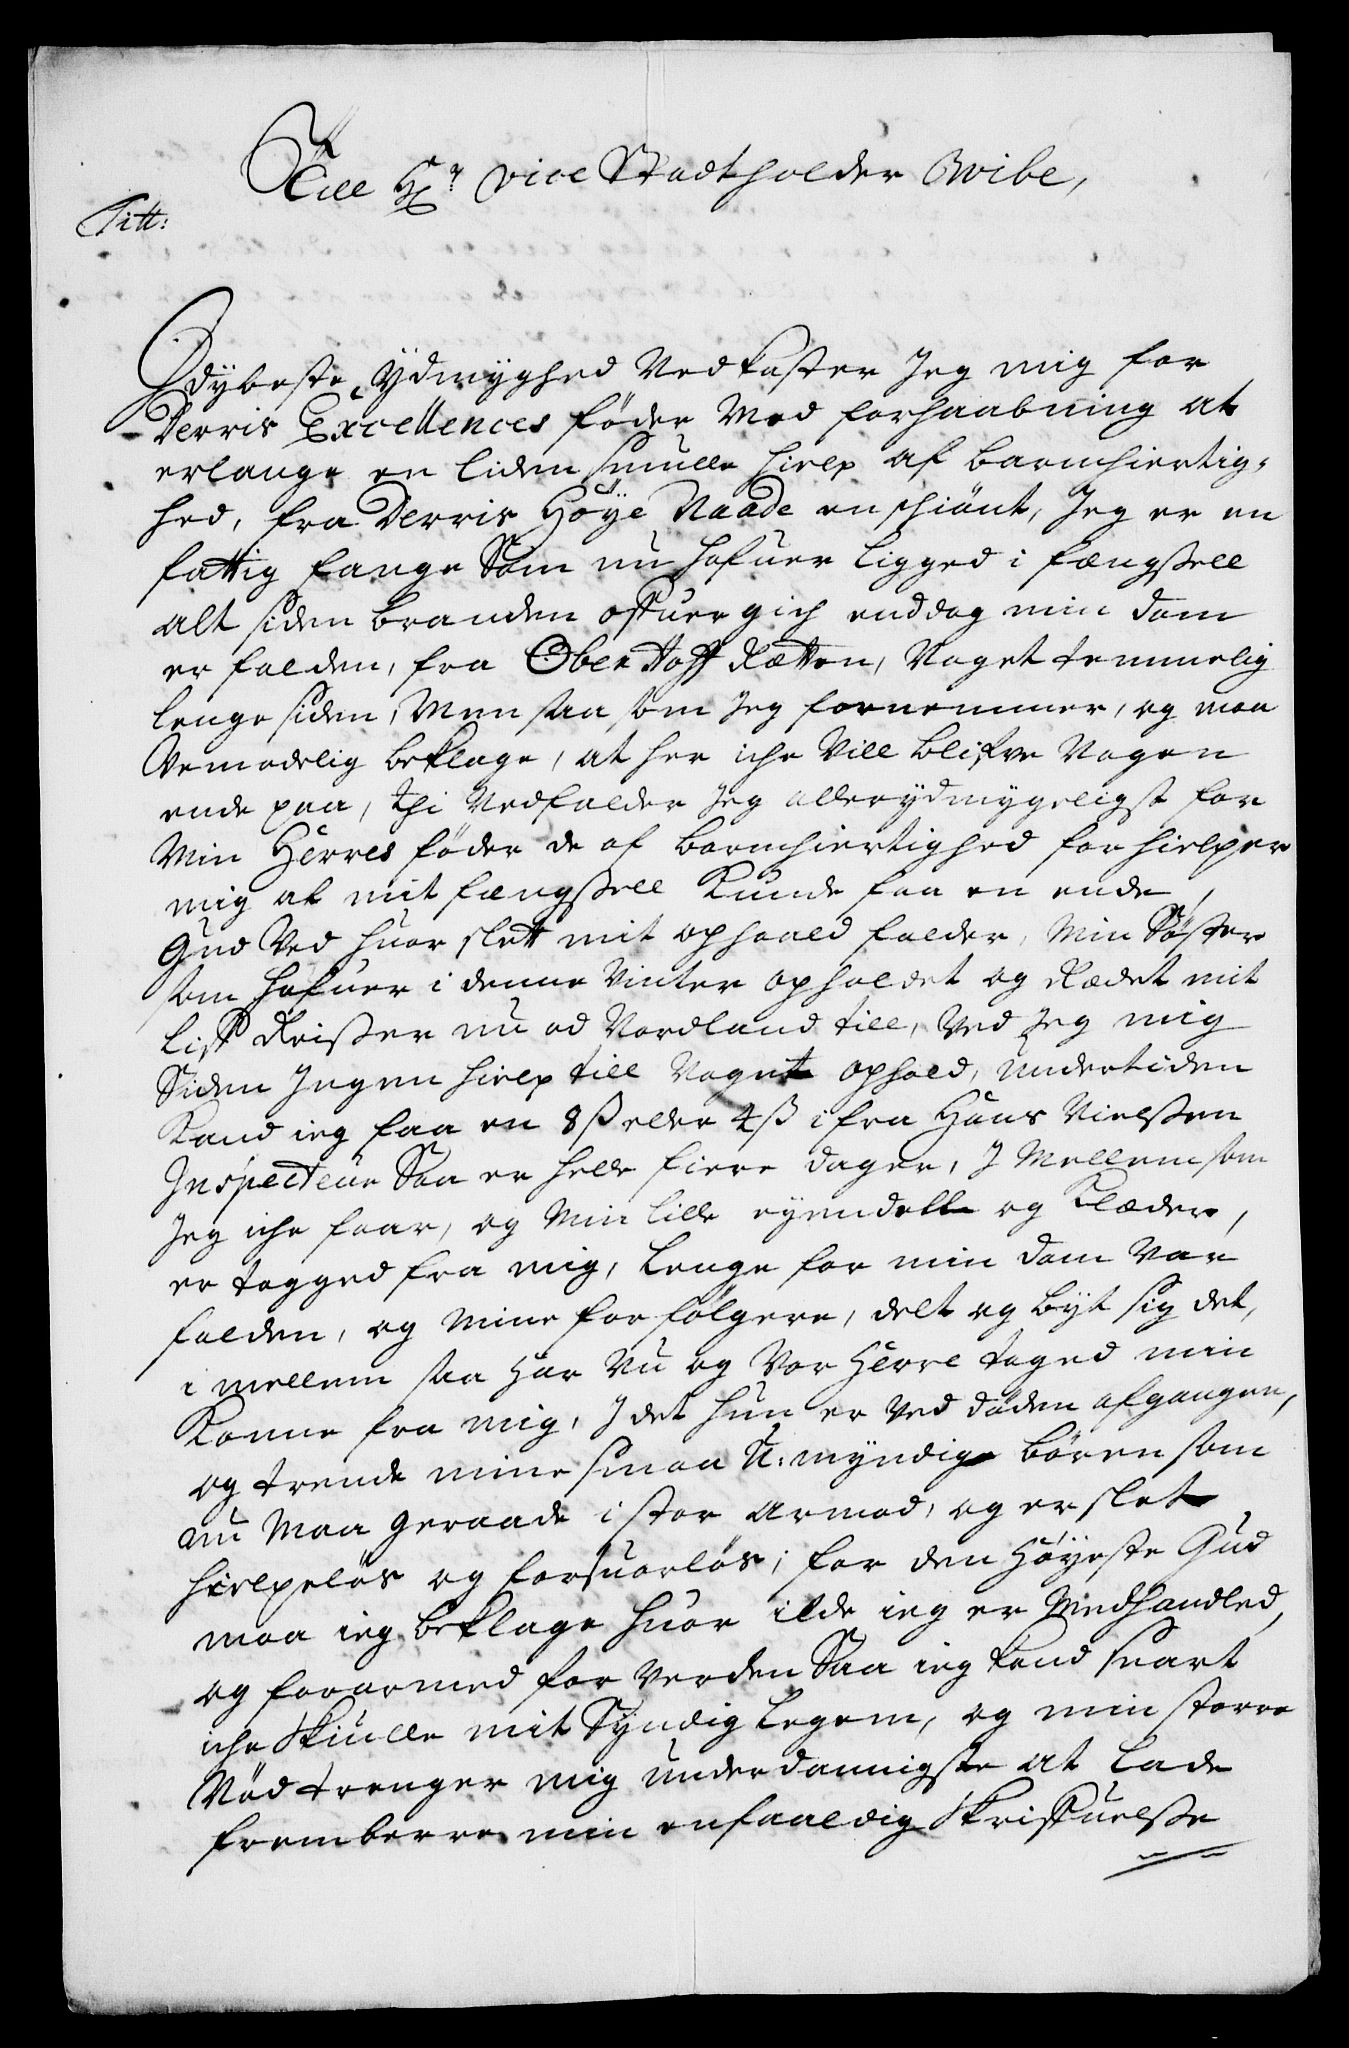 Till Hr vice Stadtholder Wibe,
Titt:
I dybeste Ydmyghed Nedkaster Jeg mig for
Derris Excellences föder Med forhaabning at
erlange en liden smulle hielp af barmhiertig-
hed, fra Derris Höye Naade en skiönt, Jeg er en
fattig fange Som nu hafuer ligged i fængsell
alt siden branden offuergich end dog min dom
er falden, fra Ober Hoff Rætten, Noget temmelig
lenge siden, Men saa som Jeg fornemmer, og maa
Vemodelig beklage, at her iche Vill blifve Nogen
ende paa, thi Nedfalder Jeg allerydmygeligst for
Min Herres föder de af barmhiertighed forhielper
mig at mit fængsell Kunde faa en ende,
Gud Ved huor slett mit ophaald falder, Min Söster
som hafuer i denne Vinter opholdet og Rædet mit
liff Reisser nu od Nordland till, Ved Jeg mig
Siden Ingen hielp till Noget ophold, undertiden
Kand ieg faa en 8 ß eller 4 ß ifra Hans Nielssen
Inspecteur Saa er helle fiere dager, I Mellem som
Jeg iche faar, og Min lille eyendelle og Klæder,
er tagged fra mig, lenge for min dom Var
falden, og Mine forfölgere, delt og byt sig det,
i mellem saa har Nu og Vor Herre taged min
Konne fra mig, I det hun er Ved döden afgangen,
og trende mine smaa U: myndige bören som
nu Maa geraade i stor armod, og er slet
hielpelös og forsuarlös, for den Höyeste Gud
maa ieg beklage huor ilde ieg er Medhandled,
og forarmed for Verden Saa ieg kand snart
iche Skiulle mit Syndig legem, og min storre
Nöd trenger mig underdannigste at lade
frembere min enfaaldig Skriffuelse